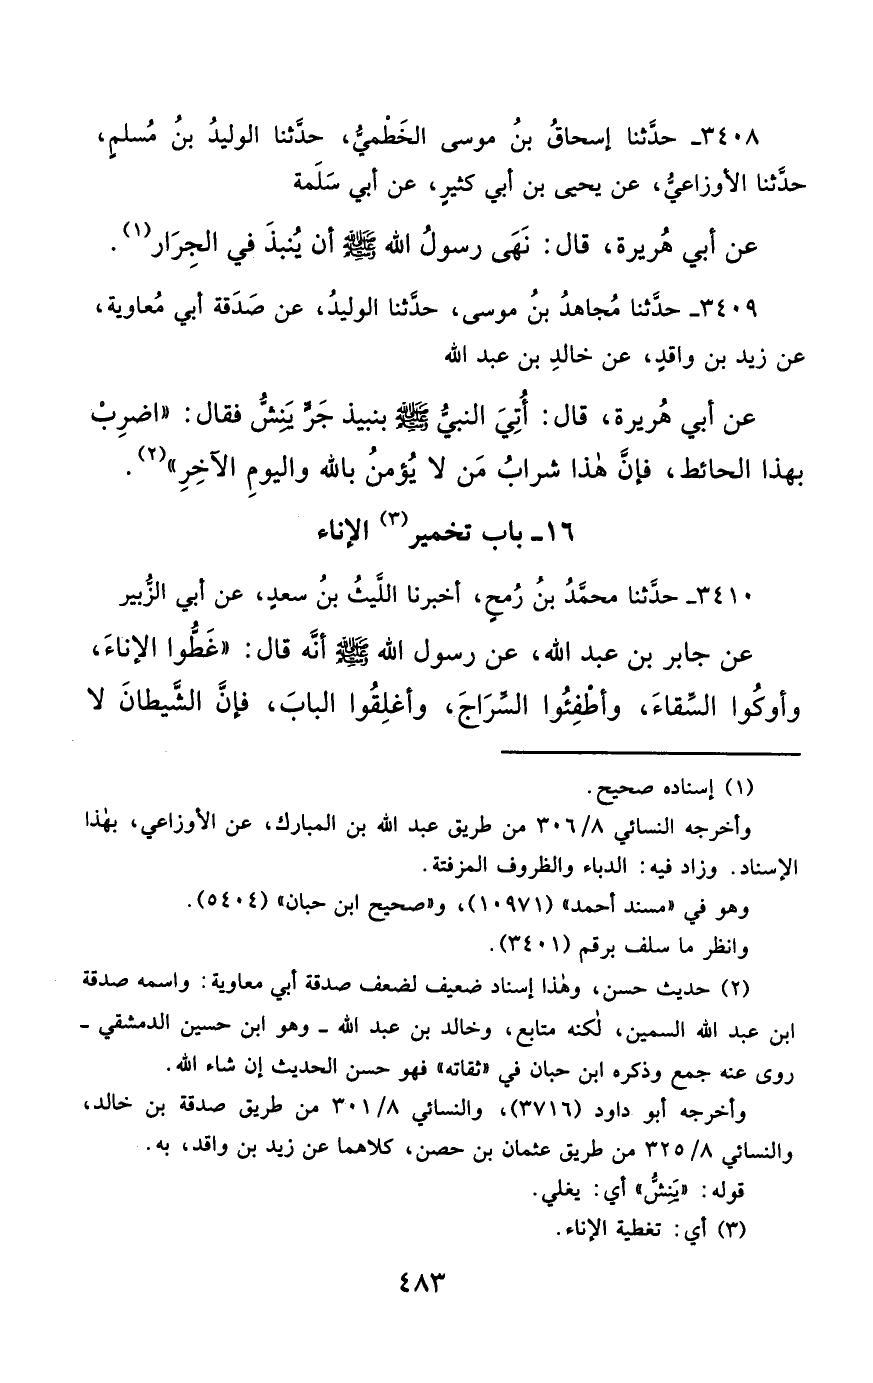 ٣٤٠٨ـ حدَّثنا إسحاقُ بنُ موسى الخَطْميُّ، حدَّثنا الوليدُ بنُ مُسلمٍ،
حدَّثنا الأوزاعيُّ، عن يحيى بن أبي كثيرٍ، عن أبي سَلَمة
عن أبي هُريرة، قال: نَهَى رسولُ الله ﷺ أن يُنبذَ في الجِرَار(١).
٣٤٠٩ـ حدَّثنا مُجاهدُ بنُ موسى، حدَّثنا الوليدُ، عن صَدَقة أبي مُعاوية،
عن زيد بن واقدٍ، عن خالدِ بن عبد الله
عن أبي هُريرة، قال: أُتِيَ النبيُّ ﷺ بنبيذ جَرٍّ يَنِشُّ فقال: «اضرِبْ
بهذا الحائط، فإنَّ هٰذا شرابُ مَن لا يُؤمنُ بالله واليومِ الآخِرِ»(٢).
١٦ـ باب تخمير(٣) الإناء
٣٤١٠ـ حدَّثنا محمَّدُ بنُ رُمحٍ، أخبرنا اللَّيثُ بنُ سعدٍ، عن أبي الزُّبير
عن جابر بن عبد الله، عن رسول الله ﷺ أنَّه قال: «غَطُّوا الإناءَ،
وأوكُوا السِّقاءَ، وأطْفِئُوا السِّرَاجَ، وأغلِقُوا البابَ، فإنَّ الشَّيطانَ لا
(١) إسناده صحيح.
وأخرجه النسائي ٣٠٦/٨ من طريق عبد الله بن المبارك، عن الأوزاعي، بهٰذا
الإسناد. وزاد فيه: الدباء والظروف المزفتة.
وهو في «مسند أحمد» (١٠٩٧١)، و«صحيح ابن حبان» (٥٤٠٤).
وانظر ما سلف برقم (٣٤٠١).
(٢) حديث حسن، وهٰذا إسناد ضعيف لضعف صدقة أبي معاوية: واسمه صدقة
ابن عبد الله السمين، لٰكنه متابع، وخالد بن عبد الله ـ وهو ابن حسين الدمشقي ـ
روى عنه جمع وذكره ابن حبان في «ثقاته» فهو حسن الحديث إن شاء الله.
وأخرجه أبو داود (٣٧١٦)، والنسائي ٣٠١/٨ من طريق صدقة بن خالد،
والنسائي ٣٢٥/٨ من طريق عثمان بن حصن، كلاهما عن زيد بن واقد، به.
قوله: «يَنِشُّ» أي: يغلي.
(٣) أي: تغطية الإناء.
٤٨٣